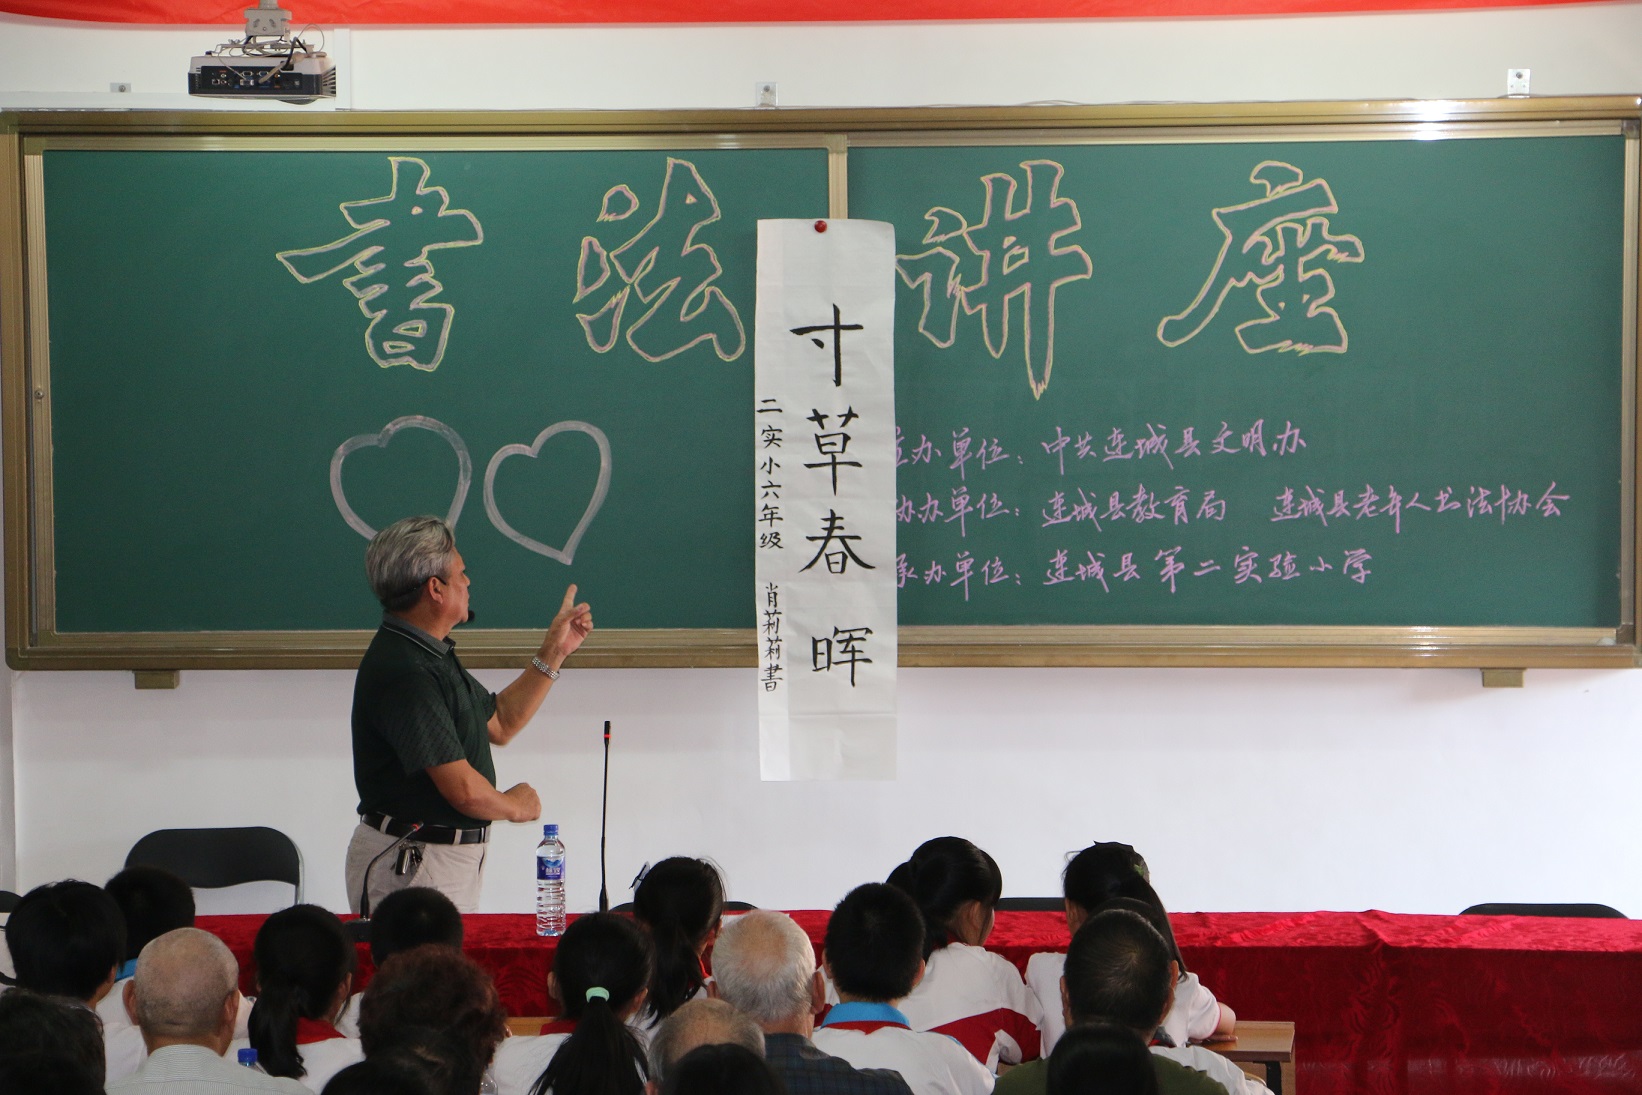 书法讲座
寸草春晖
二实小六年级 肖莉莉書
办单位：中共连城县文明办
协办单位：连城县教育局 连城县老年人书法协会
承办单位：连城县第二实验小学